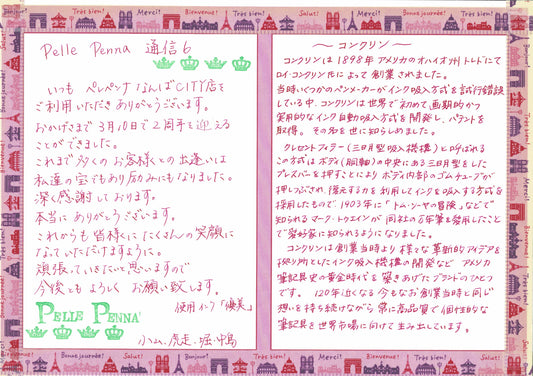 Pelle Penna 通信6
いつも ペレペンナなんばCITY店を
ご利用いただき ありがとうございます。
おかげさまで 3月10日で2周年を迎える
ことができました。
これまで多くの お客様との出逢いは
私達の宝でもあり励みにもなりました。
深く感謝しております。
本当に ありがとうございます。
これからも皆様に たくさんの笑顔に
なっていただけますように。
頑張っていきたいと思いますので
今後ともよろしく お願い致します。
PELLE PENNA
使用インク「優美」
小ム、虎走、堀、中島
～コンクリン～
コンクリンは 1898年 アメリカのオハイオ州 トレドにて
ロイ・コンクリン氏によって創業されました。
当時いくつかのペンメーカーがインク吸入方式を試行錯誤
している中、コンクリンは世界で初めて画期的かつ
実用的なインク自動吸入方式を開発し、パテントを
取得。その名を世に知らしめました。
クレセントフィラー(三日月型吸入機構)と呼ばれる
この方式はボディ(胴軸)の中央にある三日月型をした
プレスバーを押すことによりボディ内部のゴムチューブが
押しつぶされ、復元する力を利用しインクを吸入する方式を
採用したもので 1903年に「トム・ソーヤの冒険」などで
知られるマーク・トウェインが 同社の万年筆を愛用したこと
で愛好家に知られるようになりました。
コンクリンは創業当時より 様々な革新的アイデアを
拠り所としたインク吸入機構の開発など アメリカ
筆記具史の黄金時代を 築きあげたブランドのひとつ
です。120年近くなる今もなお創業当時と同じ
想いを持ち続けながら 常に高品質で個性的な
筆記具を世界市場に向けて生み出しています。
Merci!
Bienvenue!
Très bien!
Salut!
Bonne journée!
Bonjour!